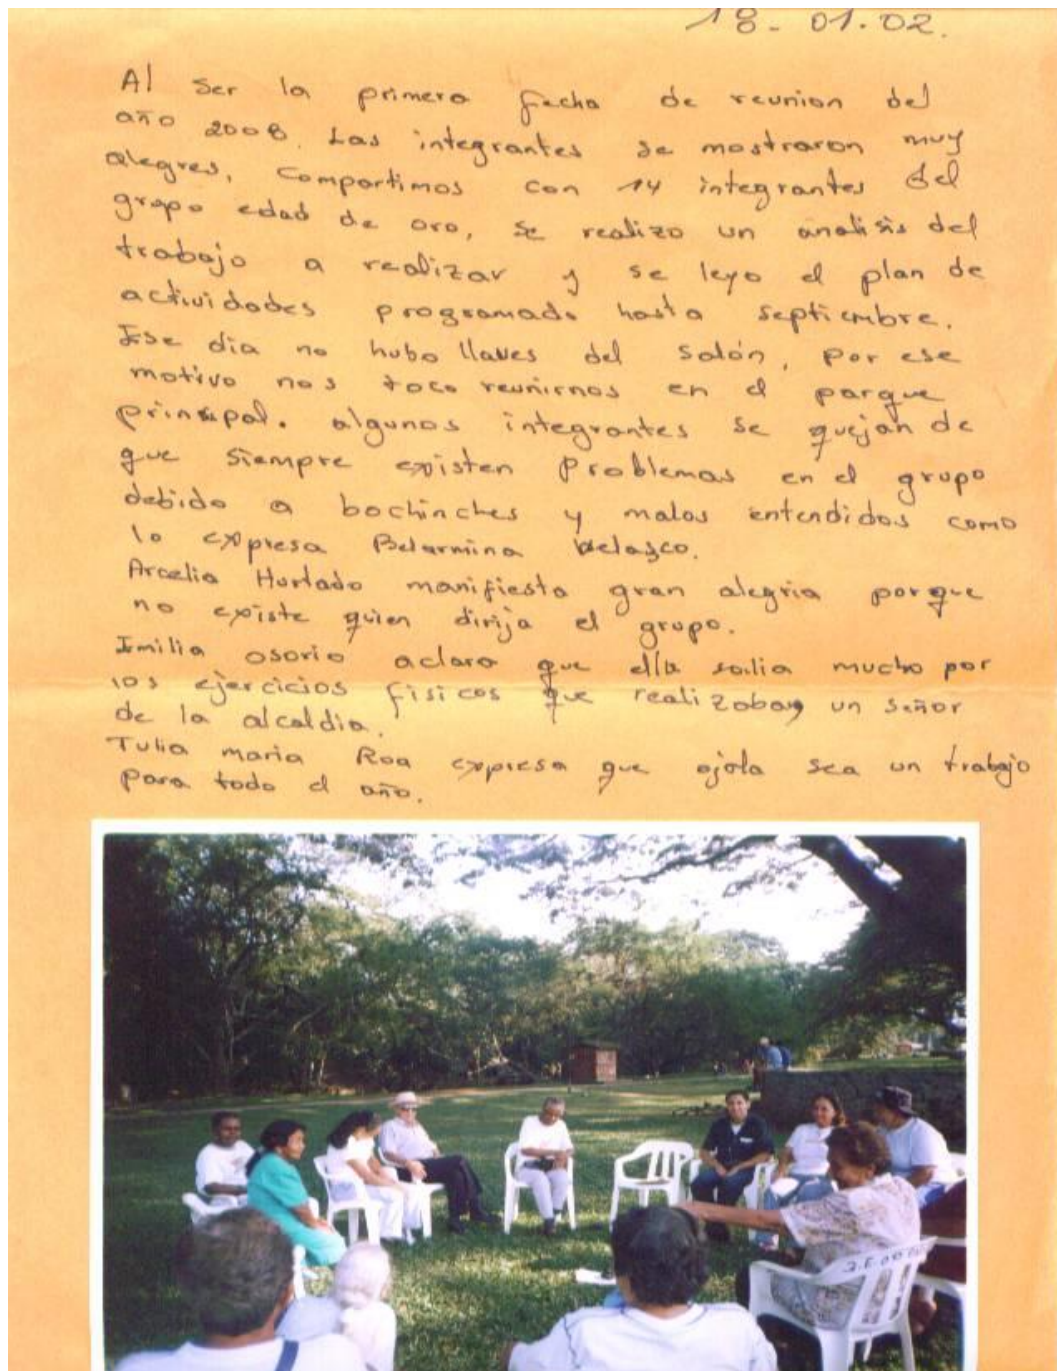 18-01.02.
Al ser la primera fecha de reunion del
año 2008. Las integrantes se mostraron muy
alegres, compartimos con 14 integrantes del
grupo edad de oro, se realizo un analisis del
trabajo a realizar y se leyo el plan de
actividades programado hasta septiembre.
Ese dia no hubo llaves del salón, por ese
motivo nos toco reunirnos en el parque
principal. algunos integrantes se quejan de
que siempre existen problemas en el grupo
debido a bochinches y malos entendidos como
lo expresa Belarmina Velasco.
Arcelia Hurtado manifiesta gran alegria porque
no existe quien dirija el grupo.
Emilia osorio aclara que ella salia mucho por
los ejercicios fisicos que realizaba un señor
de la alcaldia.
Tulia maria Roa expresa que ojala sea un trabajo
para todo el año.